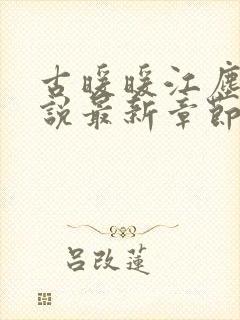 古暖暖江塵
說最新章節
呂改蓮